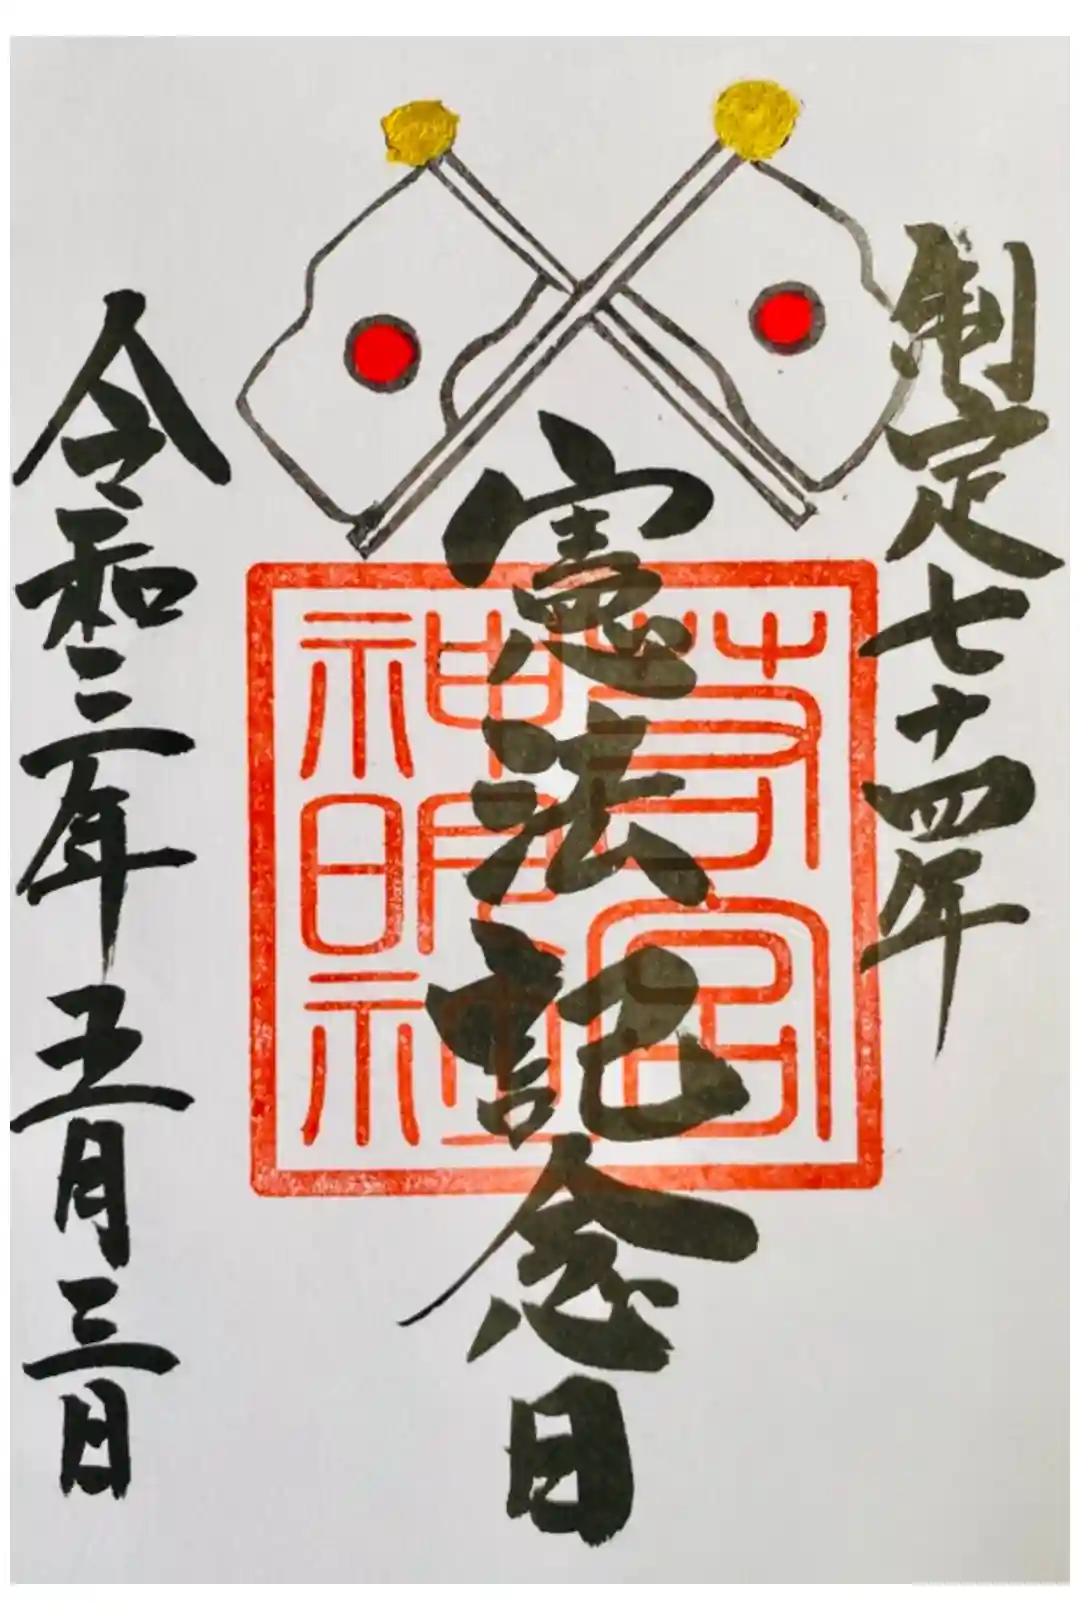 制定七十四年
憲法記念日
令和三年五月三日
若宮
神明社